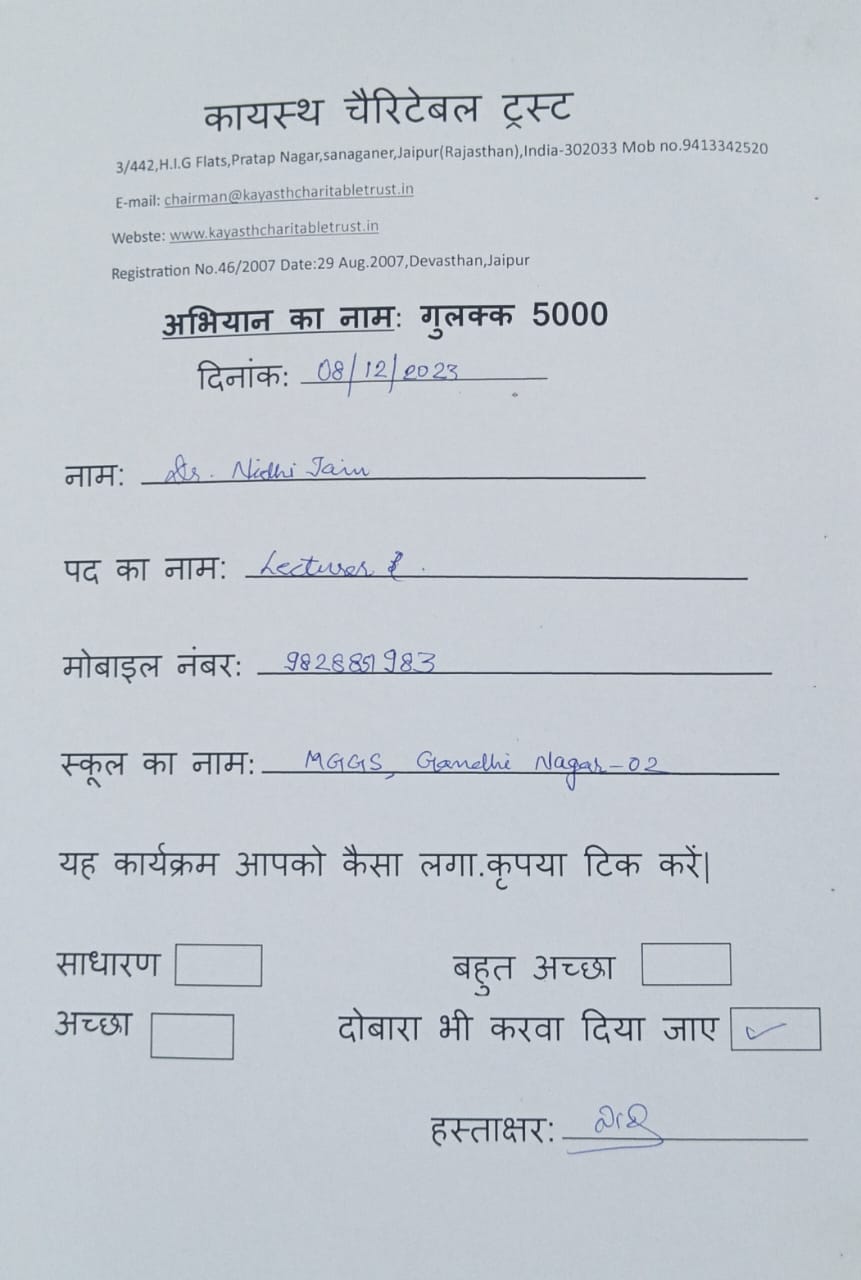 कायस्थ चैरिटेबल ट्रस्ट
3/442,H.I.G Flats,Pratap Nagar,sanaganer,Jaipur(Rajasthan),India-302033 Mob no.9413342520
E-mail: chairman@kayasthcharitabletrust.in
Webste: www.kayasthcharitabletrust.in
Registration No.46/2007 Date:29 Aug.2007,Devasthan,Jaipur
अभियान का नाम: गुलक्क 5000
दिनांक: 08/12/2023
नाम: Dr. Nidhi Jain
पद का नाम: Lecturer
मोबाइल नंबर:
स्कूल का नाम: MGGS, Gandhi Nagar-02
यह कार्यक्रम आपको कैसा लगा.कृपया टिक करें|
साधारण बहुत अच्छा
अच्छा दोबारा भी करवा दिया जाए ✓
हस्ताक्षर: